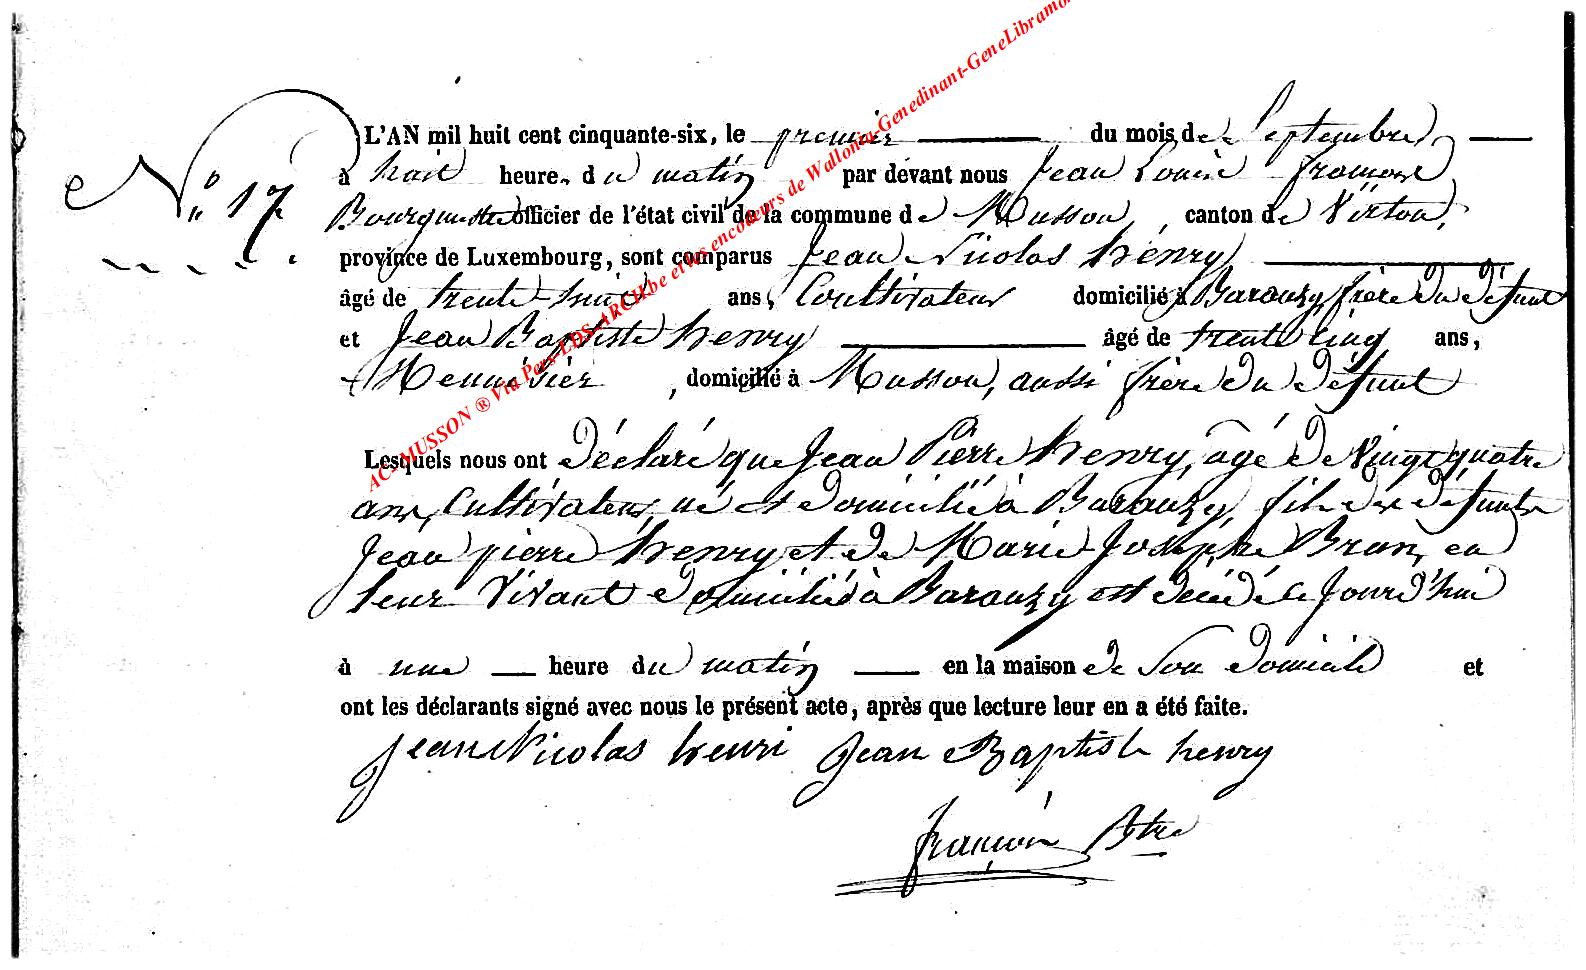 N° 17
L'AN mil huit cent cinquante-six, le premier du mois de Septembre,
à huit heure du matin par devant nous Jean Louis françois
Bourgmestre officier de l'état civil de la commune de Musson, canton de Virton,
province de Luxembourg, sont comparus Jean Nicolas henry
âgé de trente-huit ans, Coultivateur domicilié à Baranzy, frère du défunt
et Jean Baptiste henry âgé de trente cinq ans,
Menuisier, domicilié à Musson, aussi frère du défunt
Lesquels nous ont déclaré que Jean Pierre henry, âgé de vingt quatre
ans, Cultivateur, né et domicilié à Baranzy, fils des défunts
Jean pierre henry et de Marie-Josephe Bran, en
leur vivant domiciliés à Baranzy est décédé ce Jourd'hui
à une heure du matin en la maison de son domicile et
ont les déclarants signé avec nous le présent acte, après que lecture leur en a été faite.
Jean Nicolas henri Jean Baptiste henry
françois Btre
AC- MUSSON ® Via Pers-LDS-ARCH.be et les encodeurs de Wallonia-Genedinant-GeneLibramo